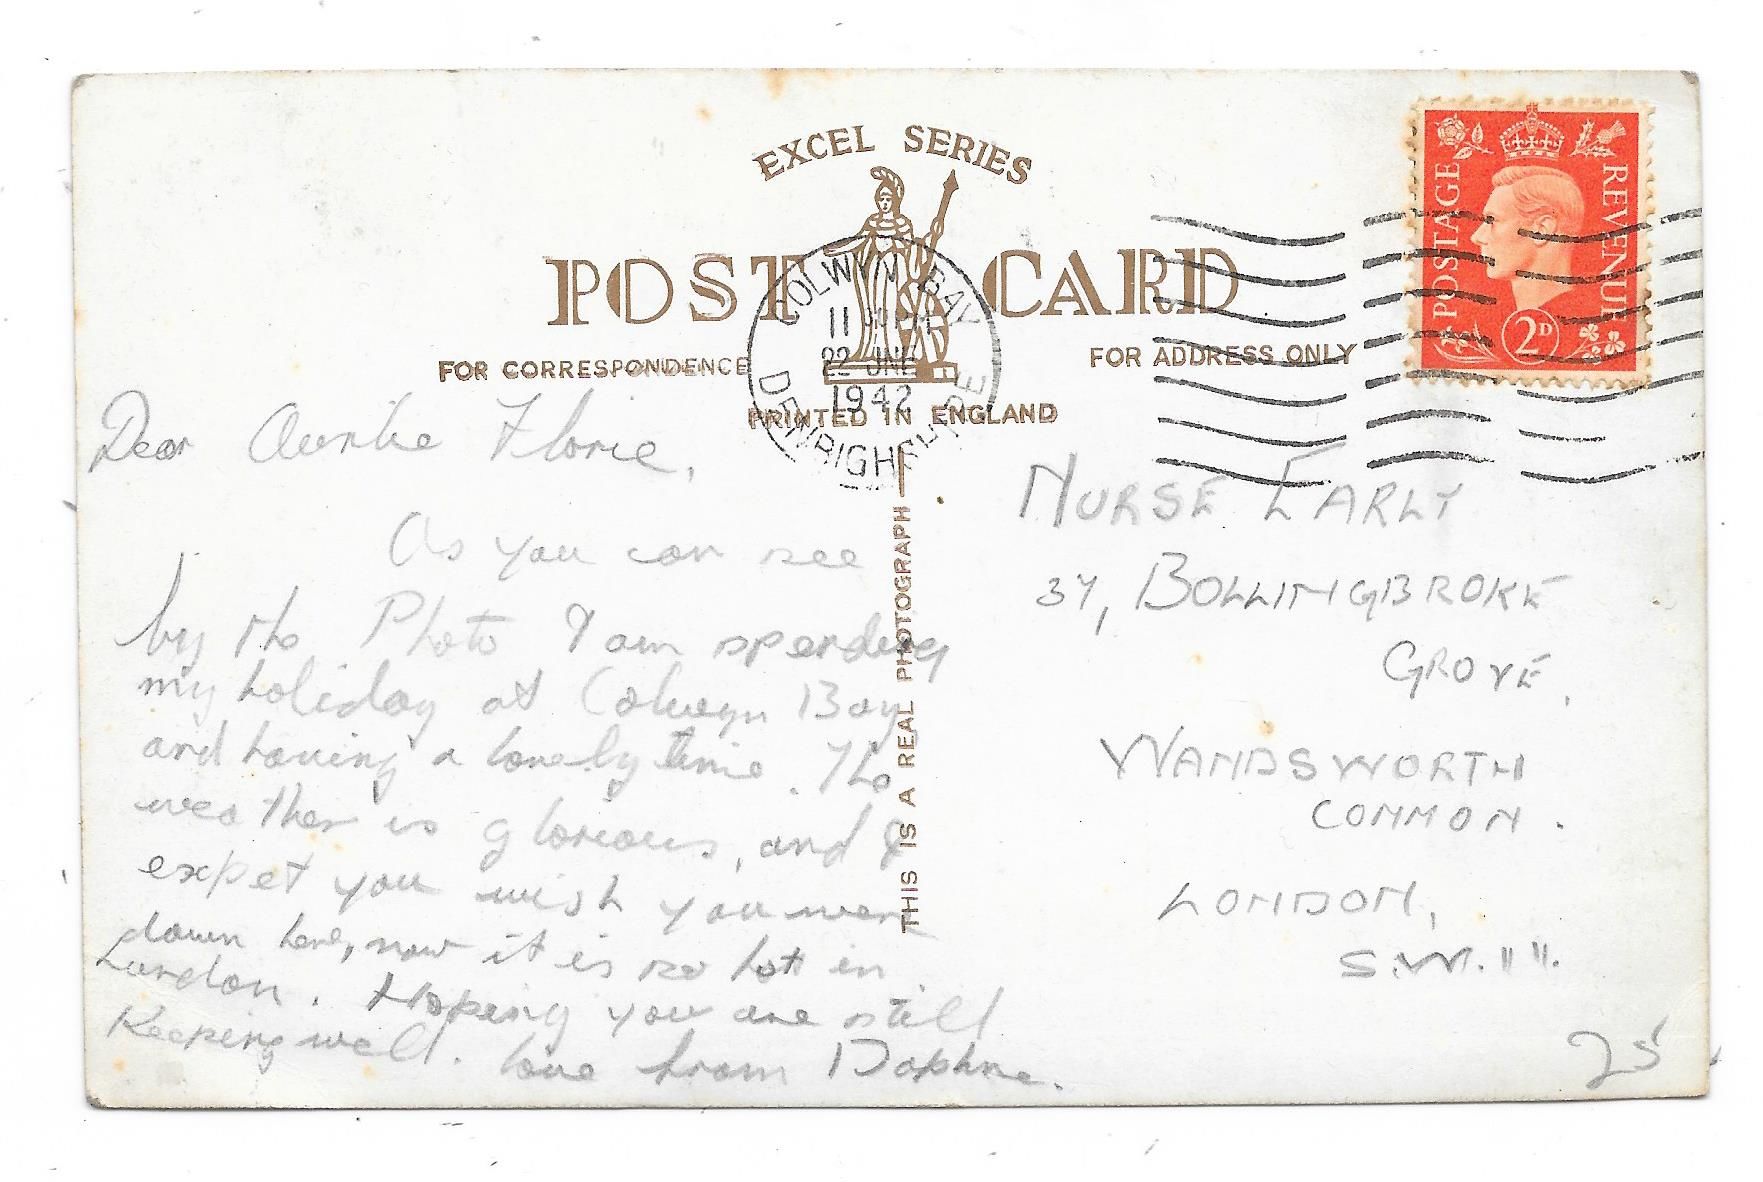 EXCEL SERIES
POST CARD
FOR CORRESPONDENCE
FOR ADDRESS ONLY
PRINTED IN ENGLAND
THIS IS A REAL PHOTOGRAPH
COLWYN BAY
11
22 JNE
1942
DENBIGHSHIRE
POSTAGE
REVENUE
2D
Dear Auntie Florie,
As you can see
by the Photo I am spending
my holiday at Colwyn Bay
and having a lovely time. The
weather is glorious, and I
expet you wish you were
down here, now it is so hot in
London. Hoping you are still
Keeping well. love from Daphne.
NURSE EARLY
37, BOLLINGBROKE
GROVE,
WANDSWORTH
COMMON.
LONDON,
S.W. 11.
25